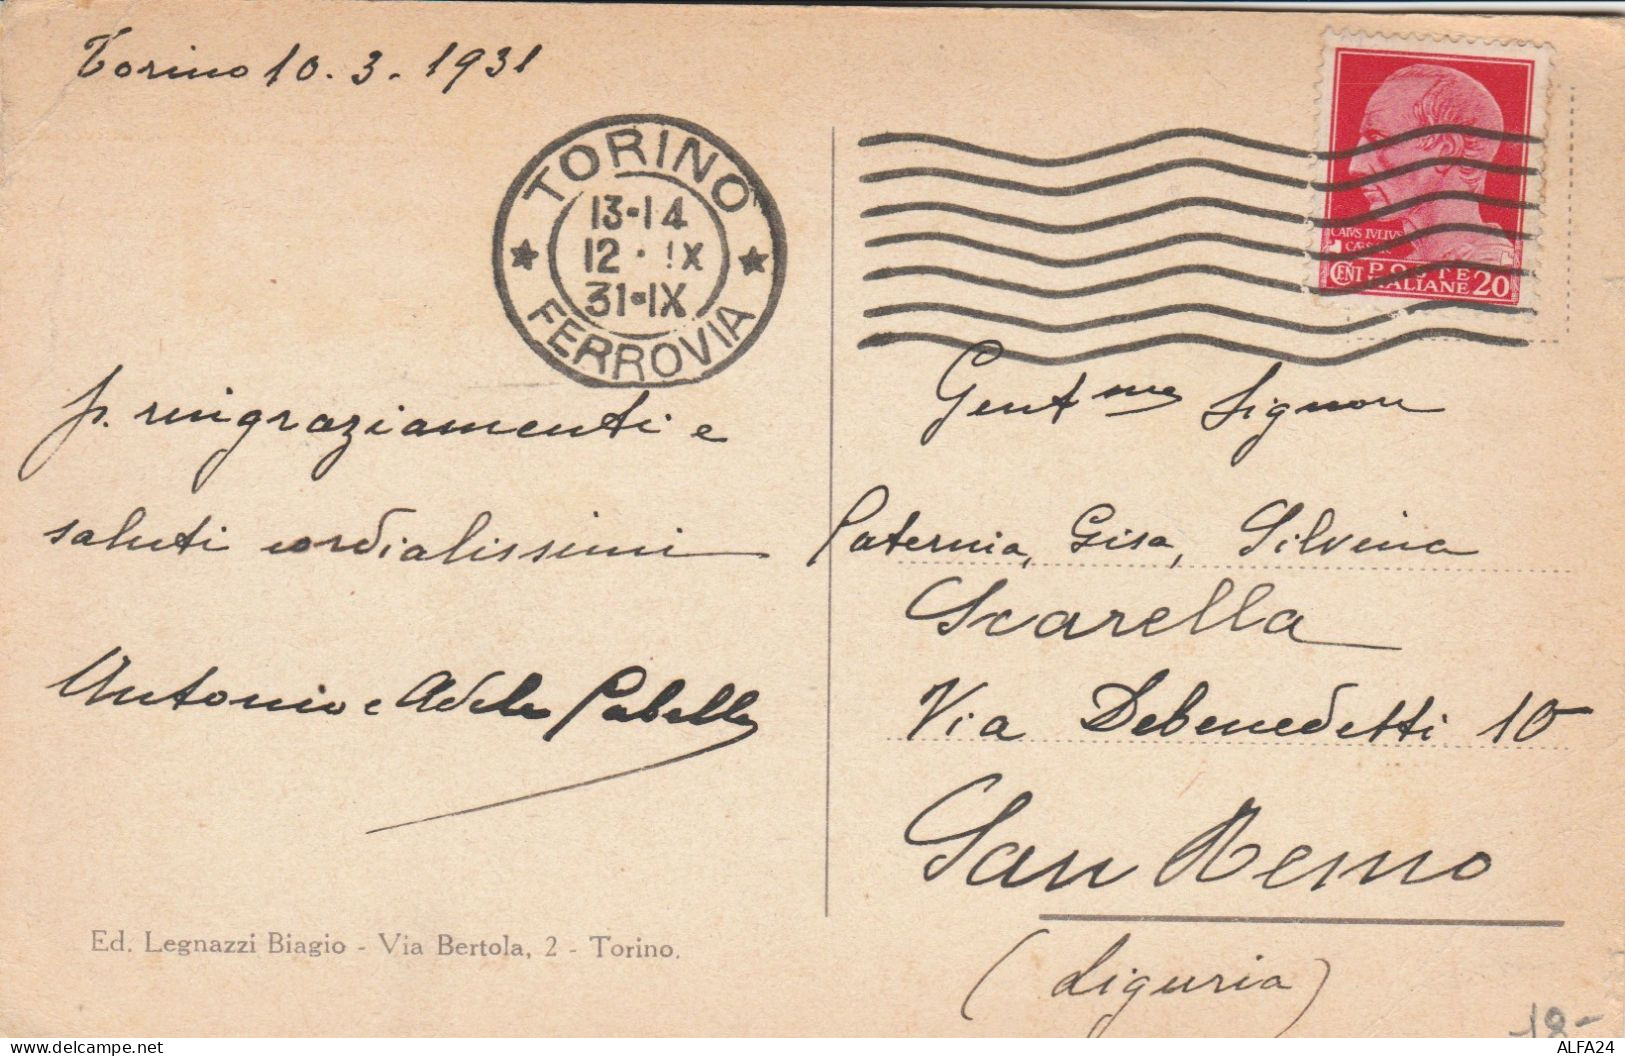 Torino 10.3.1931
TORINO
13-14
12 · IX
31-IX
FERROVIA
CAIVS IVLIVS
CAES
POSTE
CENT ITALIANE 20
p. ringraziamenti e
saluti cordialissimi
Antonio e Adele
Gent.me Signore
Paternia, Gisa, Silvina
Scarella
Via Debenedetti 10
San Remo
(Liguria)
Ed. Legnazzi Biagio - Via Bertola, 2 - Torino.
18-
ALFA24